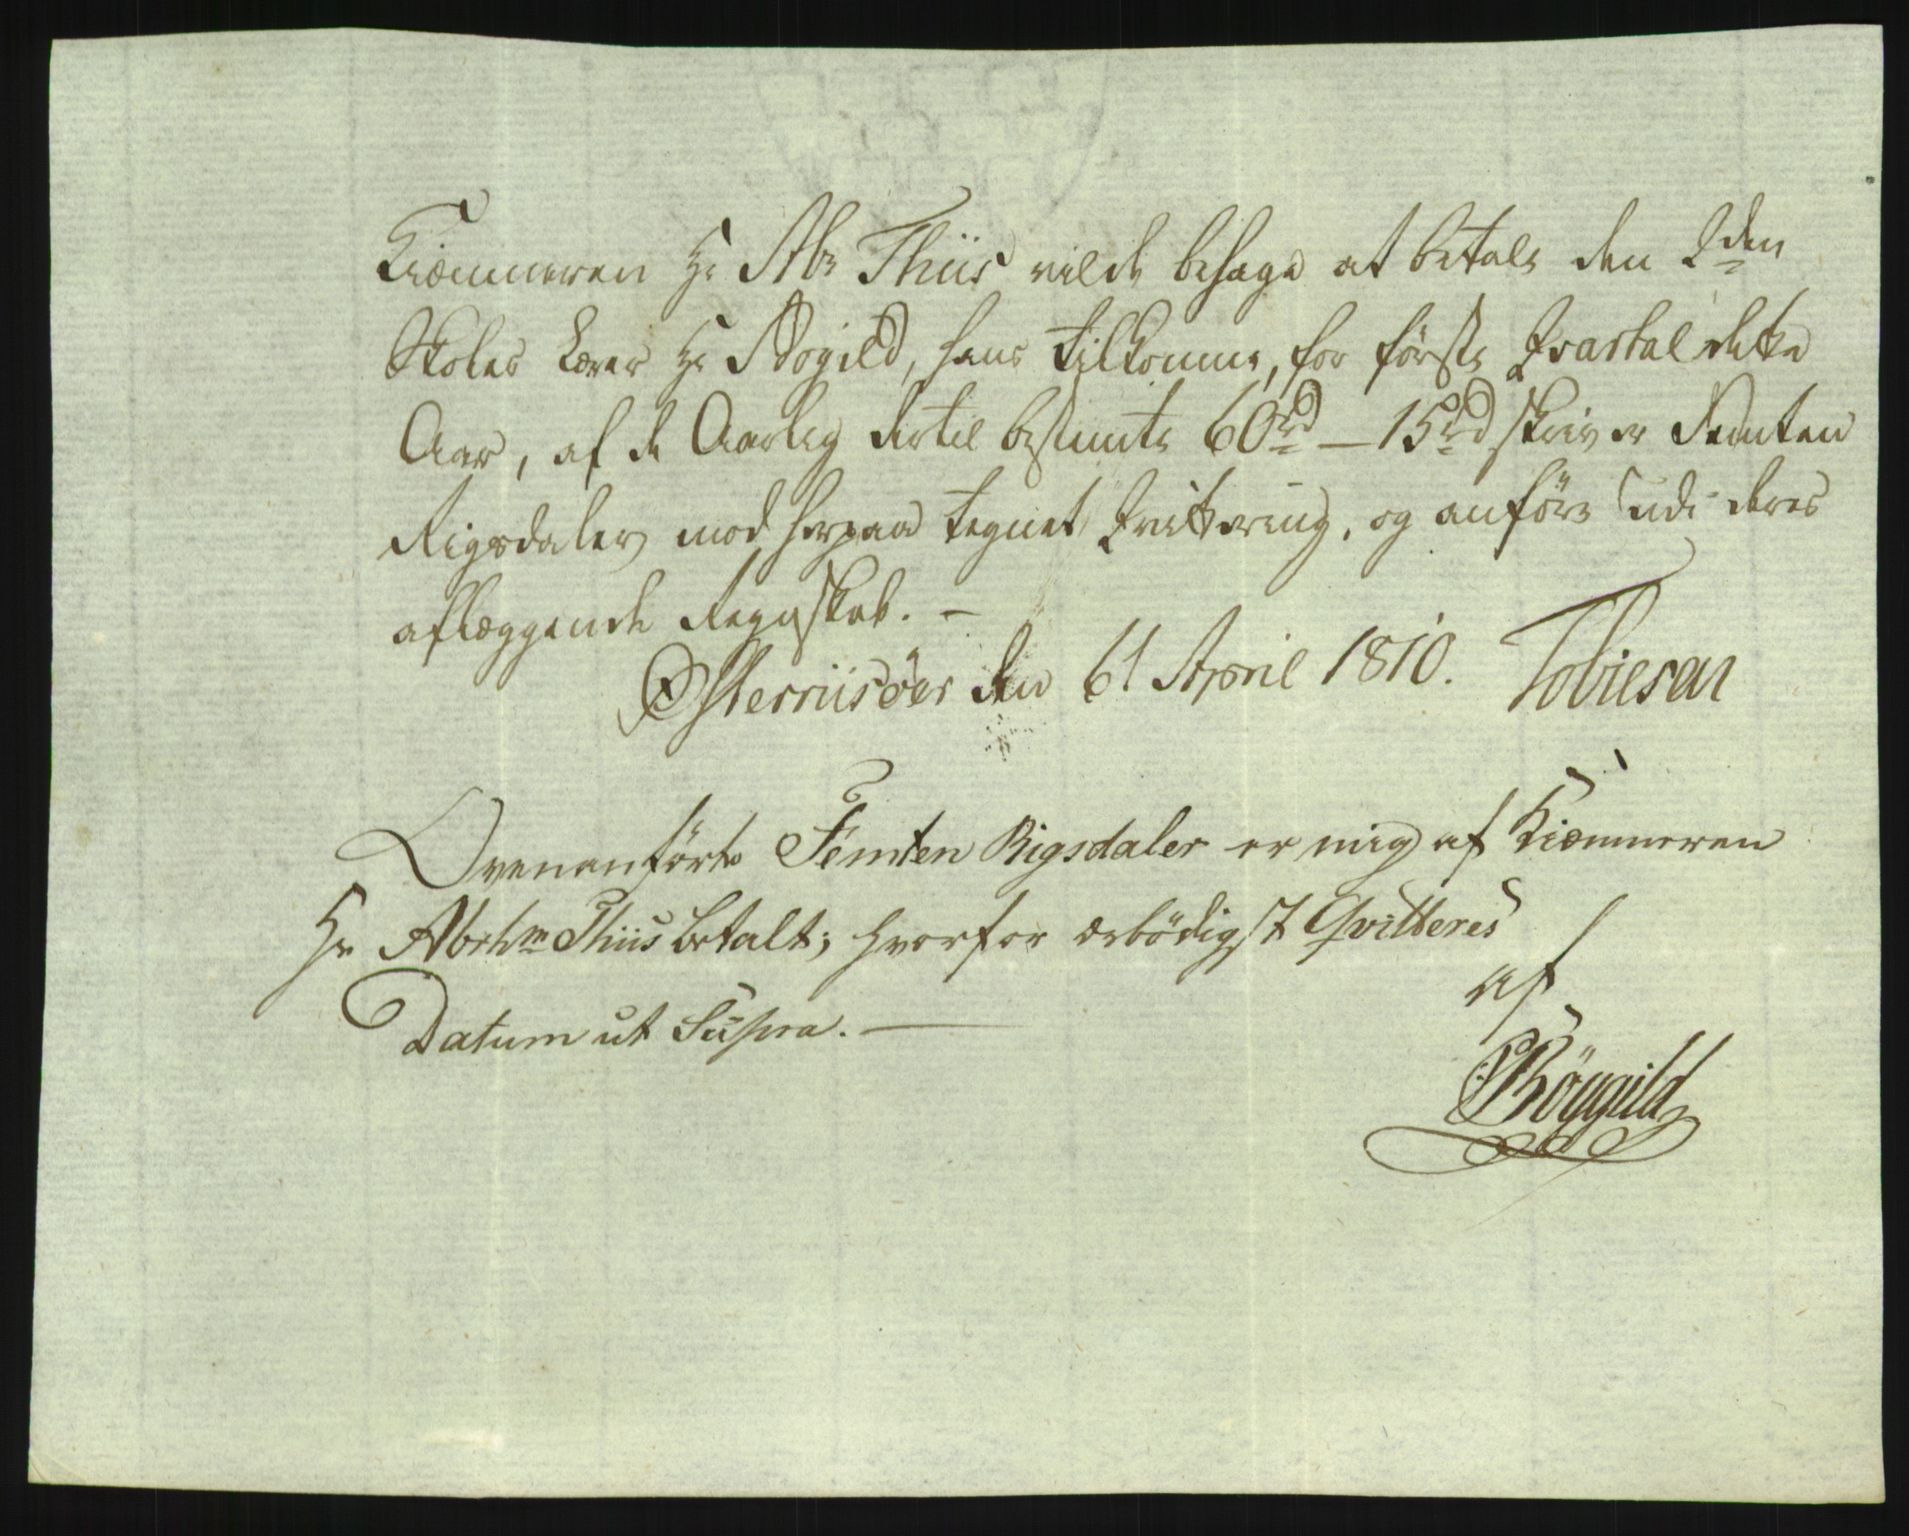 Kiæmneren Hr Abr Thiis vilde behage at betale den 2den
Skoles Lærer Hr Røgild, hans tilkomme, for første Qvartal dette
Aar, af de Aarlig dertil bestemte 60rd – 15rd skriver Femten
Rigsdaler mod herpaa tegnet Qvittering, og anføre udi deres
aflæggende Regnskab. –
Østerriisøer den 6t April 1810. Tobiesen
Ovenanførte Femten Rigsdaler er mig af Kiæmneren
Hr Abrhm Thiis betalt; hvorfor ærbödigst Qvitteres
af
Datum ut Supra. —
Röygild